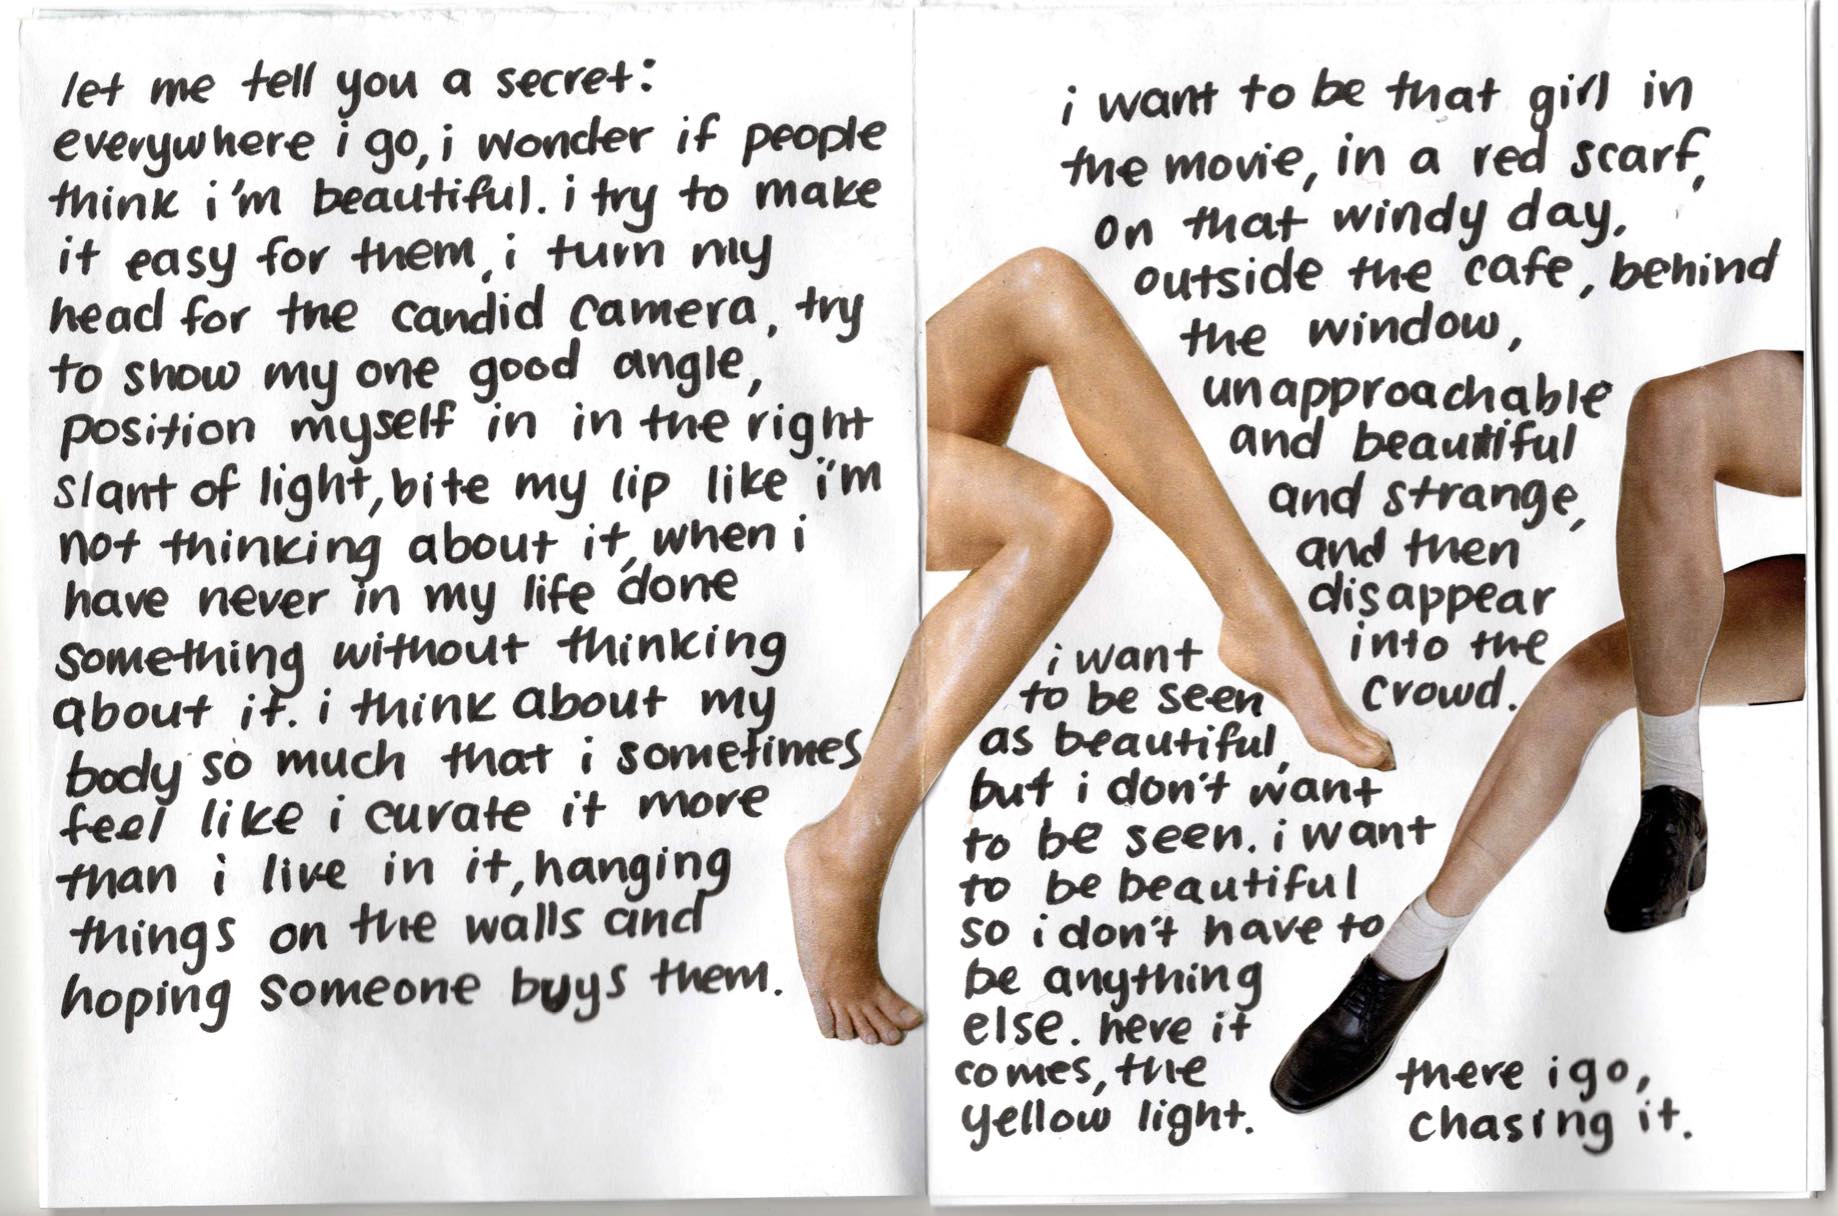 let me tell you a secret:
everywhere i go, i wonder if people
think i'm beautiful. i try to make
it easy for them, i turn my
head for the candid camera, try
to show my one good angle,
position myself in in the right
slant of light, bite my lip like i'm
not thinking about it, when i
have never in my life done
something without thinking
about it. i think about my
body so much that i sometimes
feel like i curate it more
than i live in it, hanging
things on the walls and
hoping someone buys them.
i want to be that girl in
the movie, in a red scarf,
on that windy day,
outside the cafe, behind
the window,
unapproachable
and beautiful
and strange,
and then
disappear
into the
crowd.
i want
to be seen
as beautiful,
but i don't want
to be seen. i want
to be beautiful
so i don't have to
be anything
else. here it
comes, the
yellow light.
there i go,
chasing it.